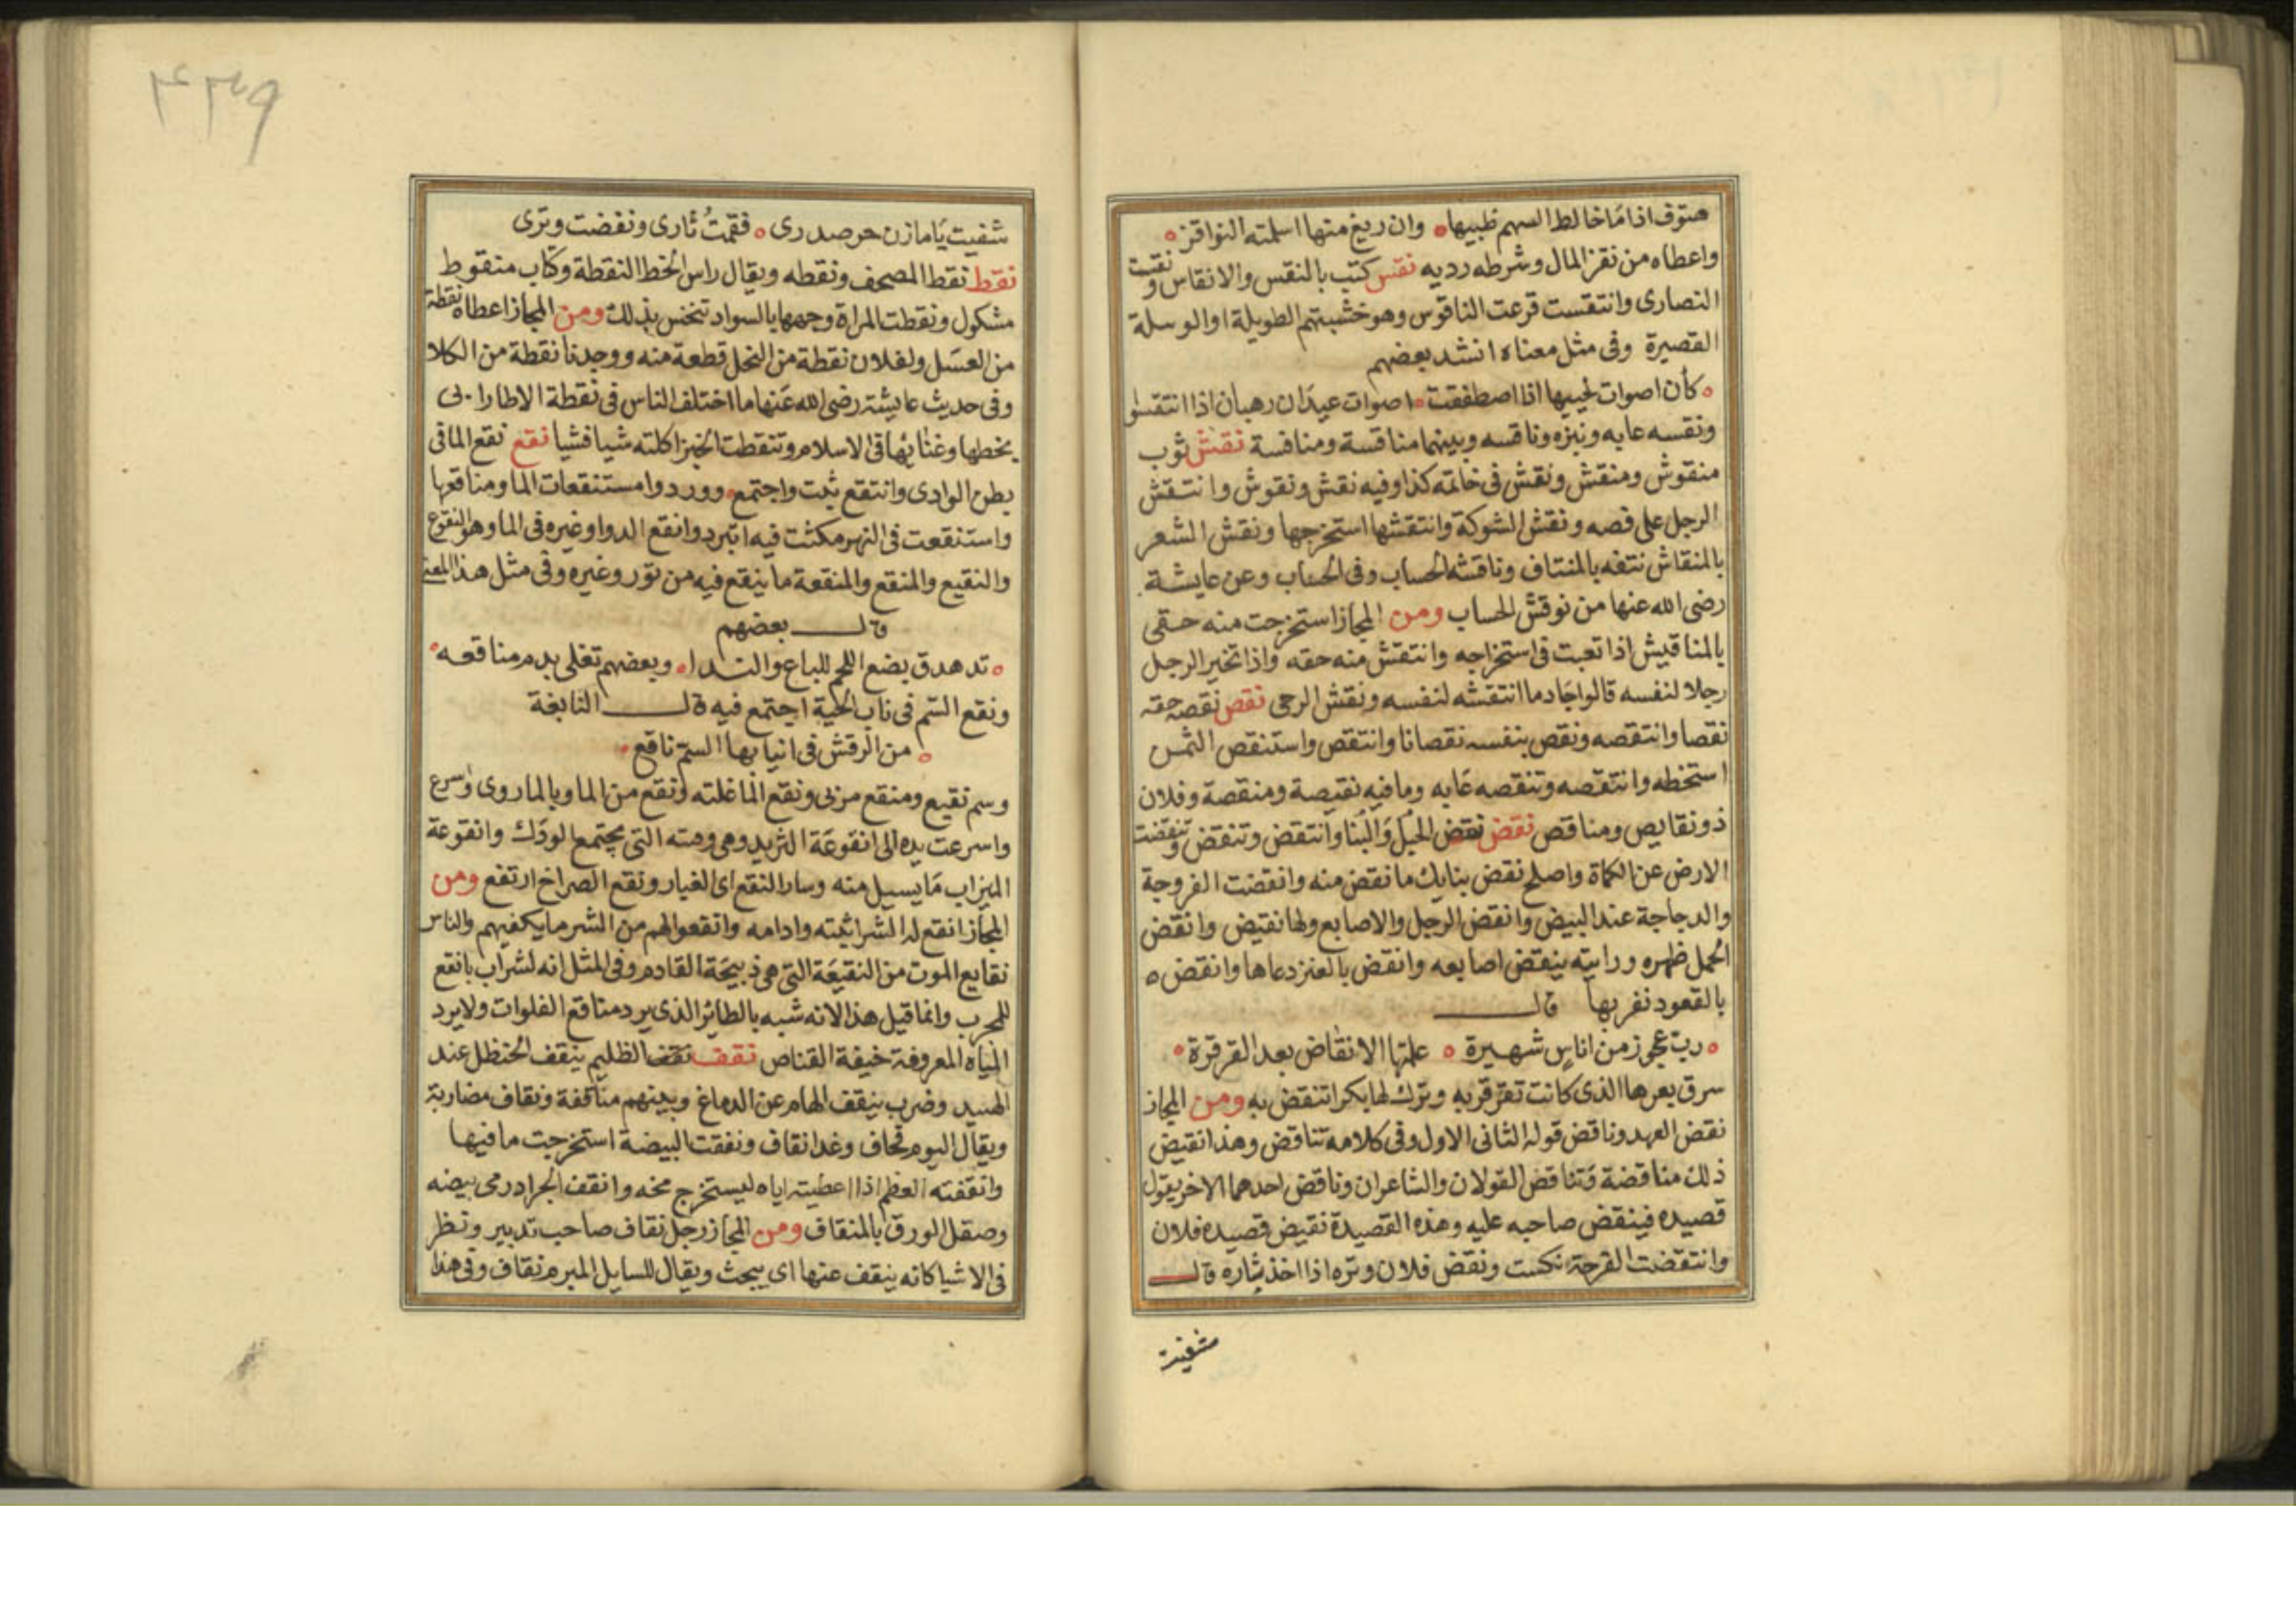 هتوف اذا ما خالط السهم ظبيها وان ريغ منها اسلمته النواقز
واعطاه من نقز المال وشرطه رديه نقس كتب بالنقس والانقاس ونقست
النصارى وانتقست قرعت الناقوس وهو خشبتهم الطويلة او الوسلة
القصيرة وفى مثل معناه انشد بعضهم
كأن اصوات لحييها اذا اصطفقت اصوات عيدان رهبان اذا انتقسوا
ونقسه عابه ونبزه وناقسه وبينهما مناقسة ومنافسة نقش ثوب
منقوش ومنقش ونقش فى خاتمه كذا وفيه نقش ونقوش وانتقش
الرجل على فصه ونقش الشوكة وانتقشها استخرجها ونقش الشعر
بالمنقاش نتفه بالمنتاف وناقشه الحساب وفى الحساب وعن عايشة
رضى الله عنها من نوقش الحساب ومن المجاز استخرجت منه حقى
بالمناقيش اذا تعبت فى استخراجه وانتقش منه حقه واذا تخير الرجل
رجلا لنفسه قالوا جاد ما انتقشه لنفسه ونقش الرحى نقص نقصه حقه
نقصا وانتقصه ونقص بنفسه نقصانا وانتقص واستنقص الثمن
استحطه وانتقصه وتنقصه عابه وما فيه نقيصة ومنقصة وفلان
ذو نقايص ومناقص نقض نقض الحبل والبنا وانتقض وتنقض وتنقضت
الارض عن الكماة واصلح نقض بنايك ما نقض منه وانقضت الفروجة
والدجاجة عند البيض وانقض الرجل والاصابع ولها نقيض وانقض
الحمل ظهره ورايته ينقض اصابعه وانقض بالعنز دعاها وانقض ه
بالقعود نفر بها قال
رب عجوز من اناس شهيرة علمتها الانقاض بعد القرقرة
سرق بعرها الذى كانت تقرقر به وترك لها بكرا تنقض به ومن المجاز
نقض العهد وناقض قوله الثانى الاول وفى كلامه تناقض وهذا نقيض
ذلك مناقضة وتناقض القولان والشاعران وناقض احدهما الاخر يقول
قصيده فينقض صاحبه عليه وهذه القصيدة نقيض قصيده فلان
وانتقضت القرحة نكست ونقض فلان وتره اذا اخذ بثاره قال
شفيت
٤٣٩
شفيت يا مازن حر صدرى فقمت ثارى ونفضت وترى
نقط نقط المصحف ونقطه ويقال راس الخط النقطة وكتاب منقوط
مشكول ونقطت المراة وجهها بالسواد تتحسن بذلك ومن المجاز اعطاه نقطة
من العسل ولفلان نقطة من النخل قطعة منه ووجدنا نقطة من الكلا
وفى حديث عايشة رضى الله عنها ما اختلف الناس فى نقطة الا طار ابى
بخطها وغنايها فى الاسلام وتنقطت الخبز اكلته شيا فشيا نقع نقع الما فى
بطن الوادى وانتقع ثبت واجتمع ووردوا مستنقعات الما ومناقعها
واستنقعت فى النهر مكثت فيه اتبرد وانقع الدوا وغيره فى الما وهو النقوع
والنقيع والمنقع والمنقعة ما ينقع فيه من تور وغيره وفى مثل هذا المعنى
قال بعضهم
تدهدق بضع اللحم للباع والندا وبعضهم تغلى بدم مناقعه
ونقع السم فى ناب الحية اجتمع فيه قال النابغة
من الرقش فى انيابها السم ناقع
وسم نقيع ومنقع مربى ونقع الما غلته ونقع من الما وبالما روى وسرع
واسرعت يده الى انقوعة الثريد وهى وهته التى يجتمع الودك وانقوعة
الميزاب ما يسيل منه وسار النقع اى الغبار ونقع الصراخ ارتفع ومن
المجاز انقع له الشر اثبته وادامه وانقعوا لهم من الشر ما يكفيهم والناس
نقايع الموت من النقيعة التى هى ذبيحة القادم وفى المثل انه لشراب بانقع
للمجرب وانما قيل هذا لانه شبه بالطائر الذى يرد مناقع الفلوات ولا يرد
المياه المعروفة خيفة القناص نقف نقف الظليم ينقف الحنظل عند
الهبيد وضرب ينقف الهام عن الدماغ وبينهم مناقفة ونقاف مضاربة
ويقال اليوم قحاف وغدا نقاف ونفقت البيضة استخرجت ما فيها
وانقفته العظم اذا اعطيته اياه ليستخرج مخه وانقف الجراد رمى بيضه
وصقل الورق بالمنقاف ومن المجاز رجل نقاف صاحب تدبير ونظر
فى الاشيا كانه ينقف عنها اى يبحث ويقال للسايل المبرم نقاف وفى هذا